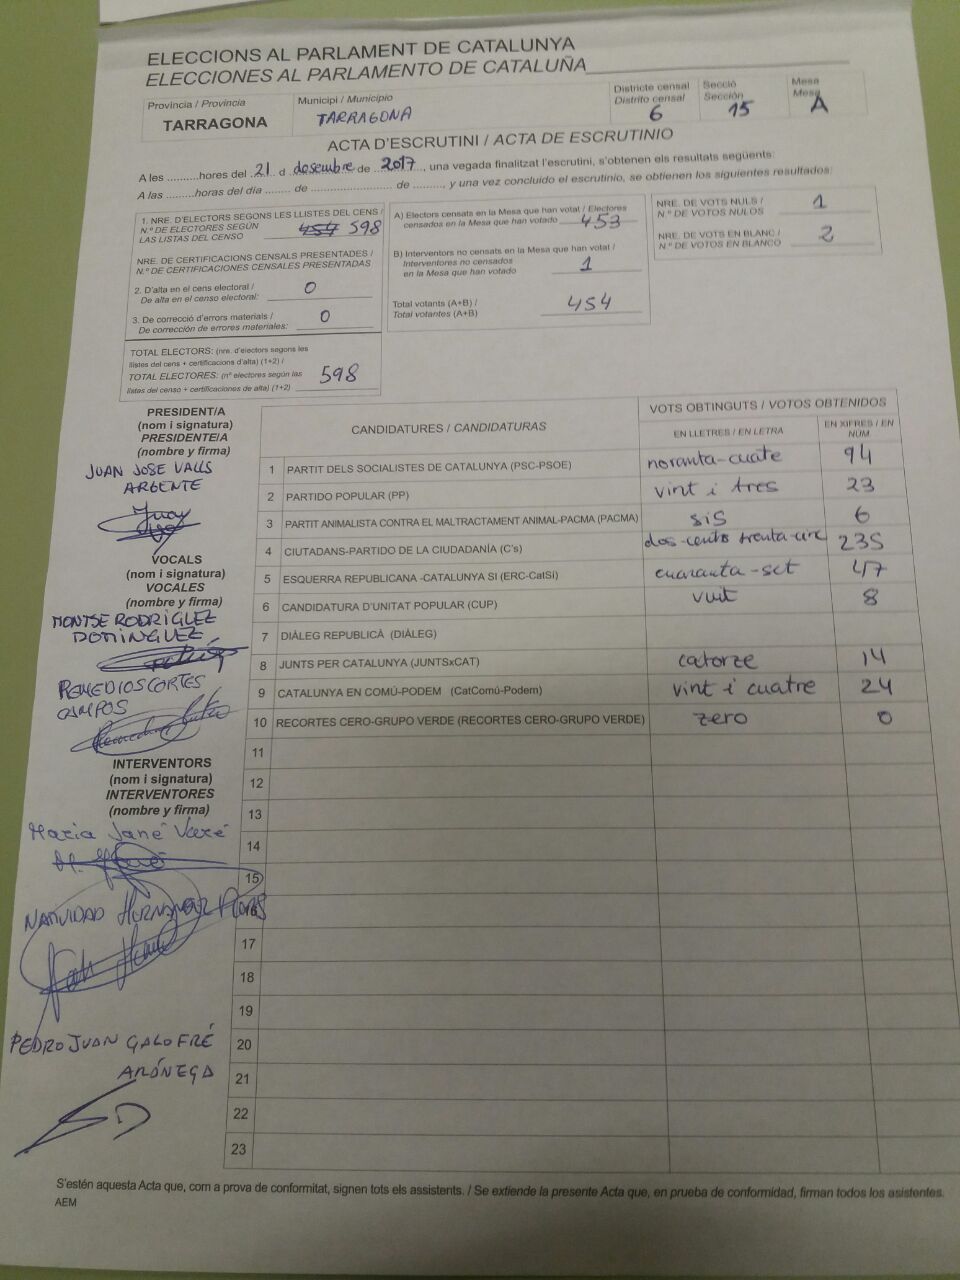 ELECCIONS AL PARLAMENT DE CATALUNYA
ELECCIONES AL PARLAMENTO DE CATALUÑA
Província / Provincia
TARRAGONA
Municipi / Municipio
TARRAGONA
Districte censal
Distrito censal
6
Secció
Sección
15
Mesa
Mesa
A
ACTA D'ESCRUTINI / ACTA DE ESCRUTINIO
A les ..........hores del .21. d .desembre de .2017., una vegada finalitzat l'escrutini, s'obtenen els resultats següents:
A las .........horas del día ........ de .......................... de ........., y una vez concluido el escrutinio, se obtienen los siguientes resultados:
1. NRE. D'ELECTORS SEGONS LES LLISTES DEL CENS /
N.º DE ELECTORES SEGÚN
LAS LISTAS DEL CENSO
454 598
NRE. DE CERTIFICACIONS CENSALS PRESENTADES /
N.º DE CERTIFICACIONES CENSALES PRESENTADAS
2. D'alta en el cens electoral /
De alta en el censo electoral:
0
3. De correcció d'errors materials /
De corrección de errores materiales:
0
TOTAL ELECTORS: (nre. d'electors segons les
llistes del cens + certificacions d'alta) (1+2) /
TOTAL ELECTORES: (nº electores según las
listas del censo + certificaciones de alta) (1+2)
598
A) Electors censats en la Mesa que han votat / Electores
censados en la Mesa que han votado
453
B) Interventors no censats en la Mesa que han votat /
Interventores no censados
en la Mesa que han votado
1
Total votants (A+B) /
Total votantes (A+B)
454
NRE. DE VOTS NULS /
N.º DE VOTOS NULOS
1
NRE. DE VOTS EN BLANC /
N.º DE VOTOS EN BLANCO
2
PRESIDENT/A
(nom i signatura)
PRESIDENTE/A
(nombre y firma)
JUAN JOSE VALLS
ARGENTE
VOCALS
(nom i signatura)
VOCALES
(nombre y firma)
MONTSE RODRIGUEZ
DOMINGUEZ
REMEDIOS CORTES
CAMPOS
INTERVENTORS
(nom i signatura)
INTERVENTORES
(nombre y firma)
Maria Jané
NATIVIDAD
PEDRO JUAN GALOFRÉ
CANDIDATURES / CANDIDATURAS
VOTS OBTINGUTS / VOTOS OBTENIDOS
EN LLETRES / EN LETRA
EN XIFRES / EN
NÚM
1 PARTIT DELS SOCIALISTES DE CATALUNYA (PSC-PSOE) noranta-cuate 94
2 PARTIDO POPULAR (PP) vint i tres 23
3 PARTIT ANIMALISTA CONTRA EL MALTRACTAMENT ANIMAL-PACMA (PACMA) sis 6
4 CIUTADANS-PARTIDO DE LA CIUDADANÍA (C's) dos-cents trenta-cinc 235
5 ESQUERRA REPUBLICANA -CATALUNYA SI (ERC-CatSí) cuaranta-set 47
6 CANDIDATURA D'UNITAT POPULAR (CUP) vuit 8
7 DIÀLEG REPUBLICÀ (DIÀLEG)
8 JUNTS PER CATALUNYA (JUNTSxCAT) catorze 14
9 CATALUNYA EN COMÚ-PODEM (CatComú-Podem) vint i cuatre 24
10 RECORTES CERO-GRUPO VERDE (RECORTES CERO-GRUPO VERDE) zero 0
11
12
13
14
15
16
17
18
19
20
21
22
23
S'estén aquesta Acta que, com a prova de conformitat, signen tots els assistents. / Se extiende la presente Acta que, en prueba de conformidad, firman todos los asistentes.
AEM